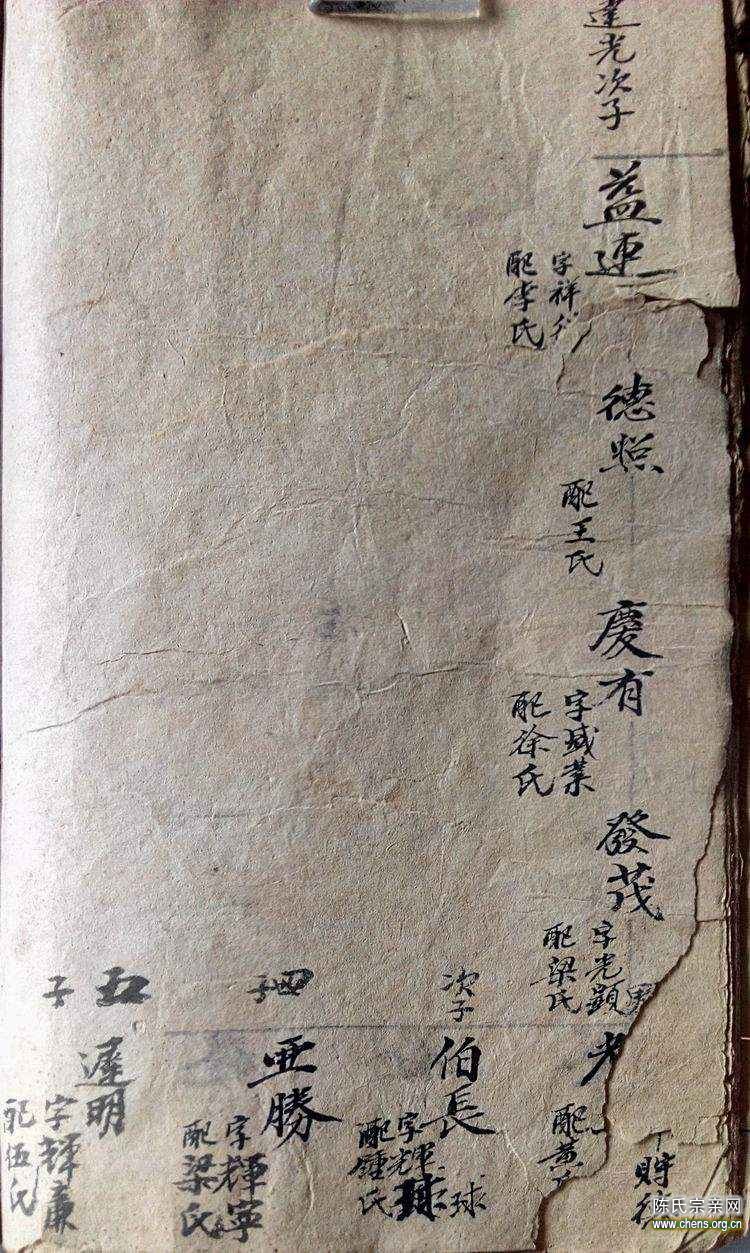 建光次子
益連
字祥
配李氏
德照
配王氏
慶有
字盛業
配徐氏
發茂
字光顕
配梁氏
配黄
財
次子
伯長
字輝球
球
配鍾氏
四子
亜勝
字輝寧
配梁氏
五子
達明
字輝廉
配伍氏
陈氏宗亲网
www.chens.org.cn